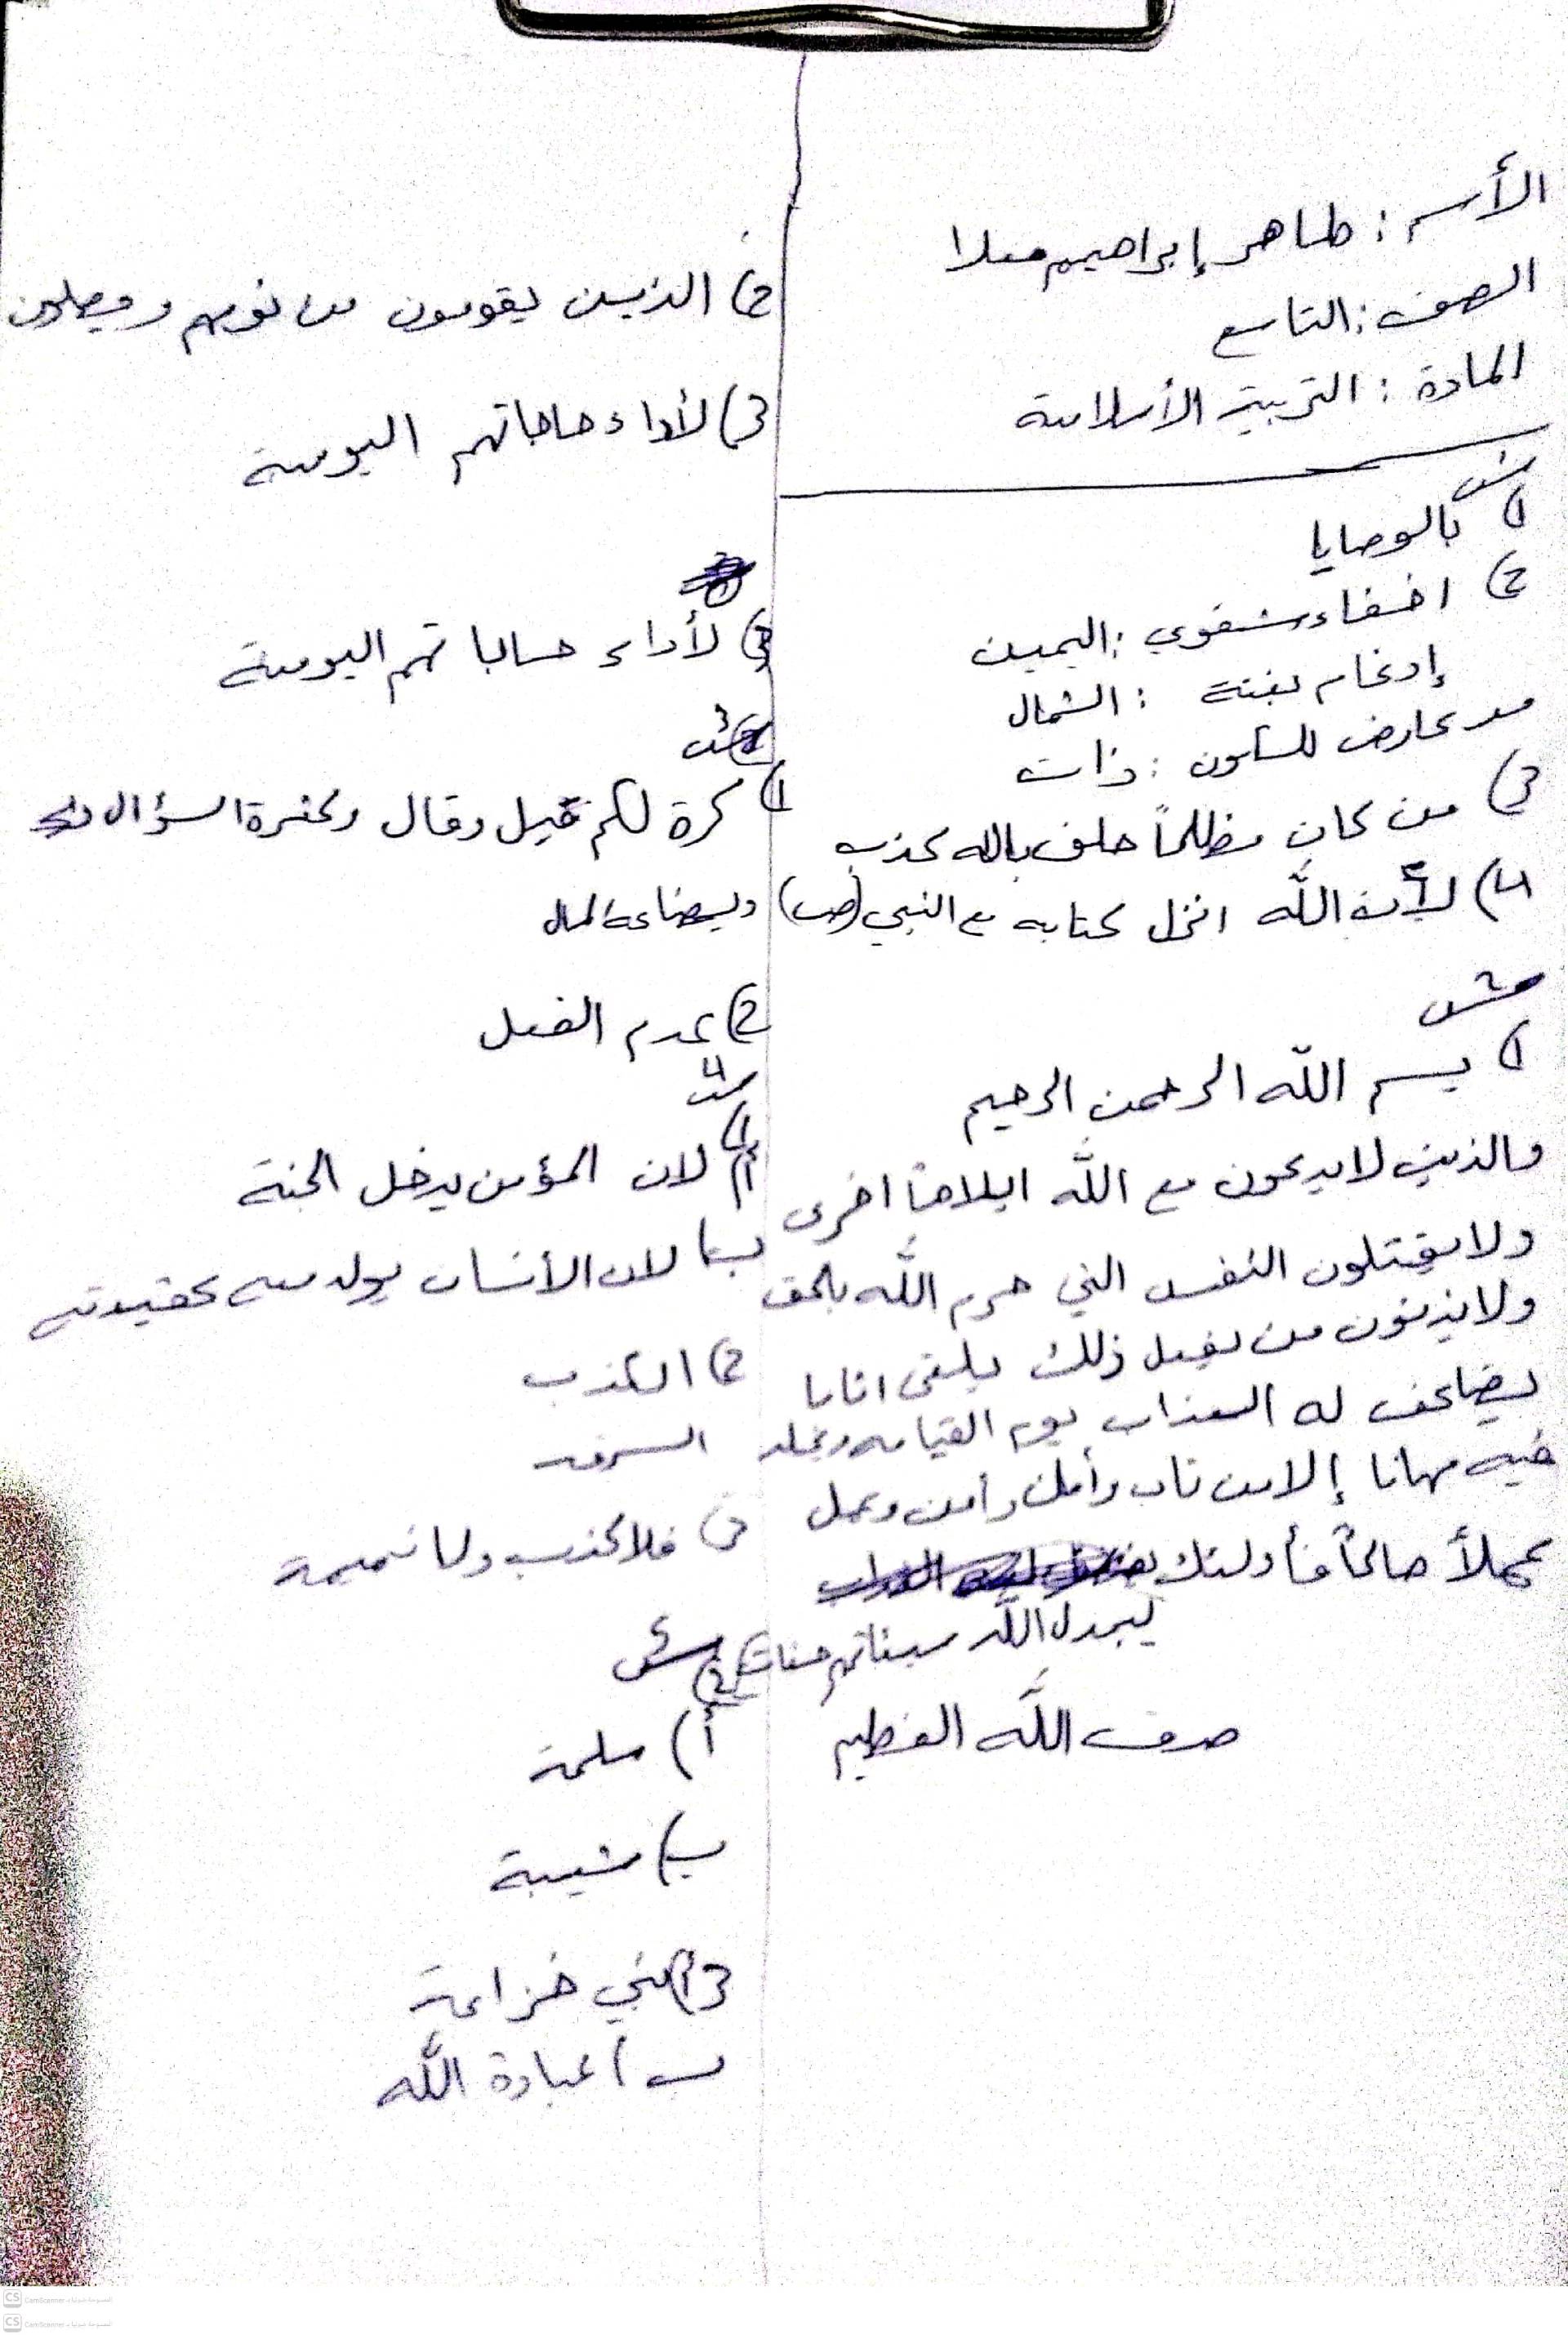 الأسم : طاهر إبراهيم ملا
الصف : التاسع
المادة : التربية الأسلامية
س١
1) بالوصايا
2) اخفاء شفوي : اليمين
إدغام بغنة : الشمال
مد عارض للسكون : ذات
3) من كان مظلماً حلف بالله كذب
4) لأن الله انزل كتابه مع النبي (ص)
س٢
1) بسم الله الرحمن الرحيم
والذين لا يدعون مع الله ايلاهاً اخرى
ولا يقتلون النفس التي حرم الله بالحق
ولا يزنون من يفعل ذلك يلقى اثاما
يضاعف له العذاب يوم القيامه ويخلد
فيه مهانا إلا من تاب وأمن وعمل
عملاً صالحاً فأولئك
يبدل الله سيئاتهم حسنات
صدق الله العظيم
2) الذين يقومون من نومهم ويصلون
3) لأداء حاجاتهم اليومية
3) لأداء حساباتهم اليومية
س٣
1) كرة لكم قيل وقال وكثرة السؤال
ويضاعة المال
2) عدم الفعل
س4
1)
أ) لان المؤمن يدخل الجنة
ب) لان الأنسان يولد مع عقيدته
2) الكذب
السرقة
3) فلا كذب ولا نميمة
س
2)
أ) سلمة
ب) شيبة
3) أ) بني خزاعة
ب) عبادة الله
CS CamScanner
CS CamScanner